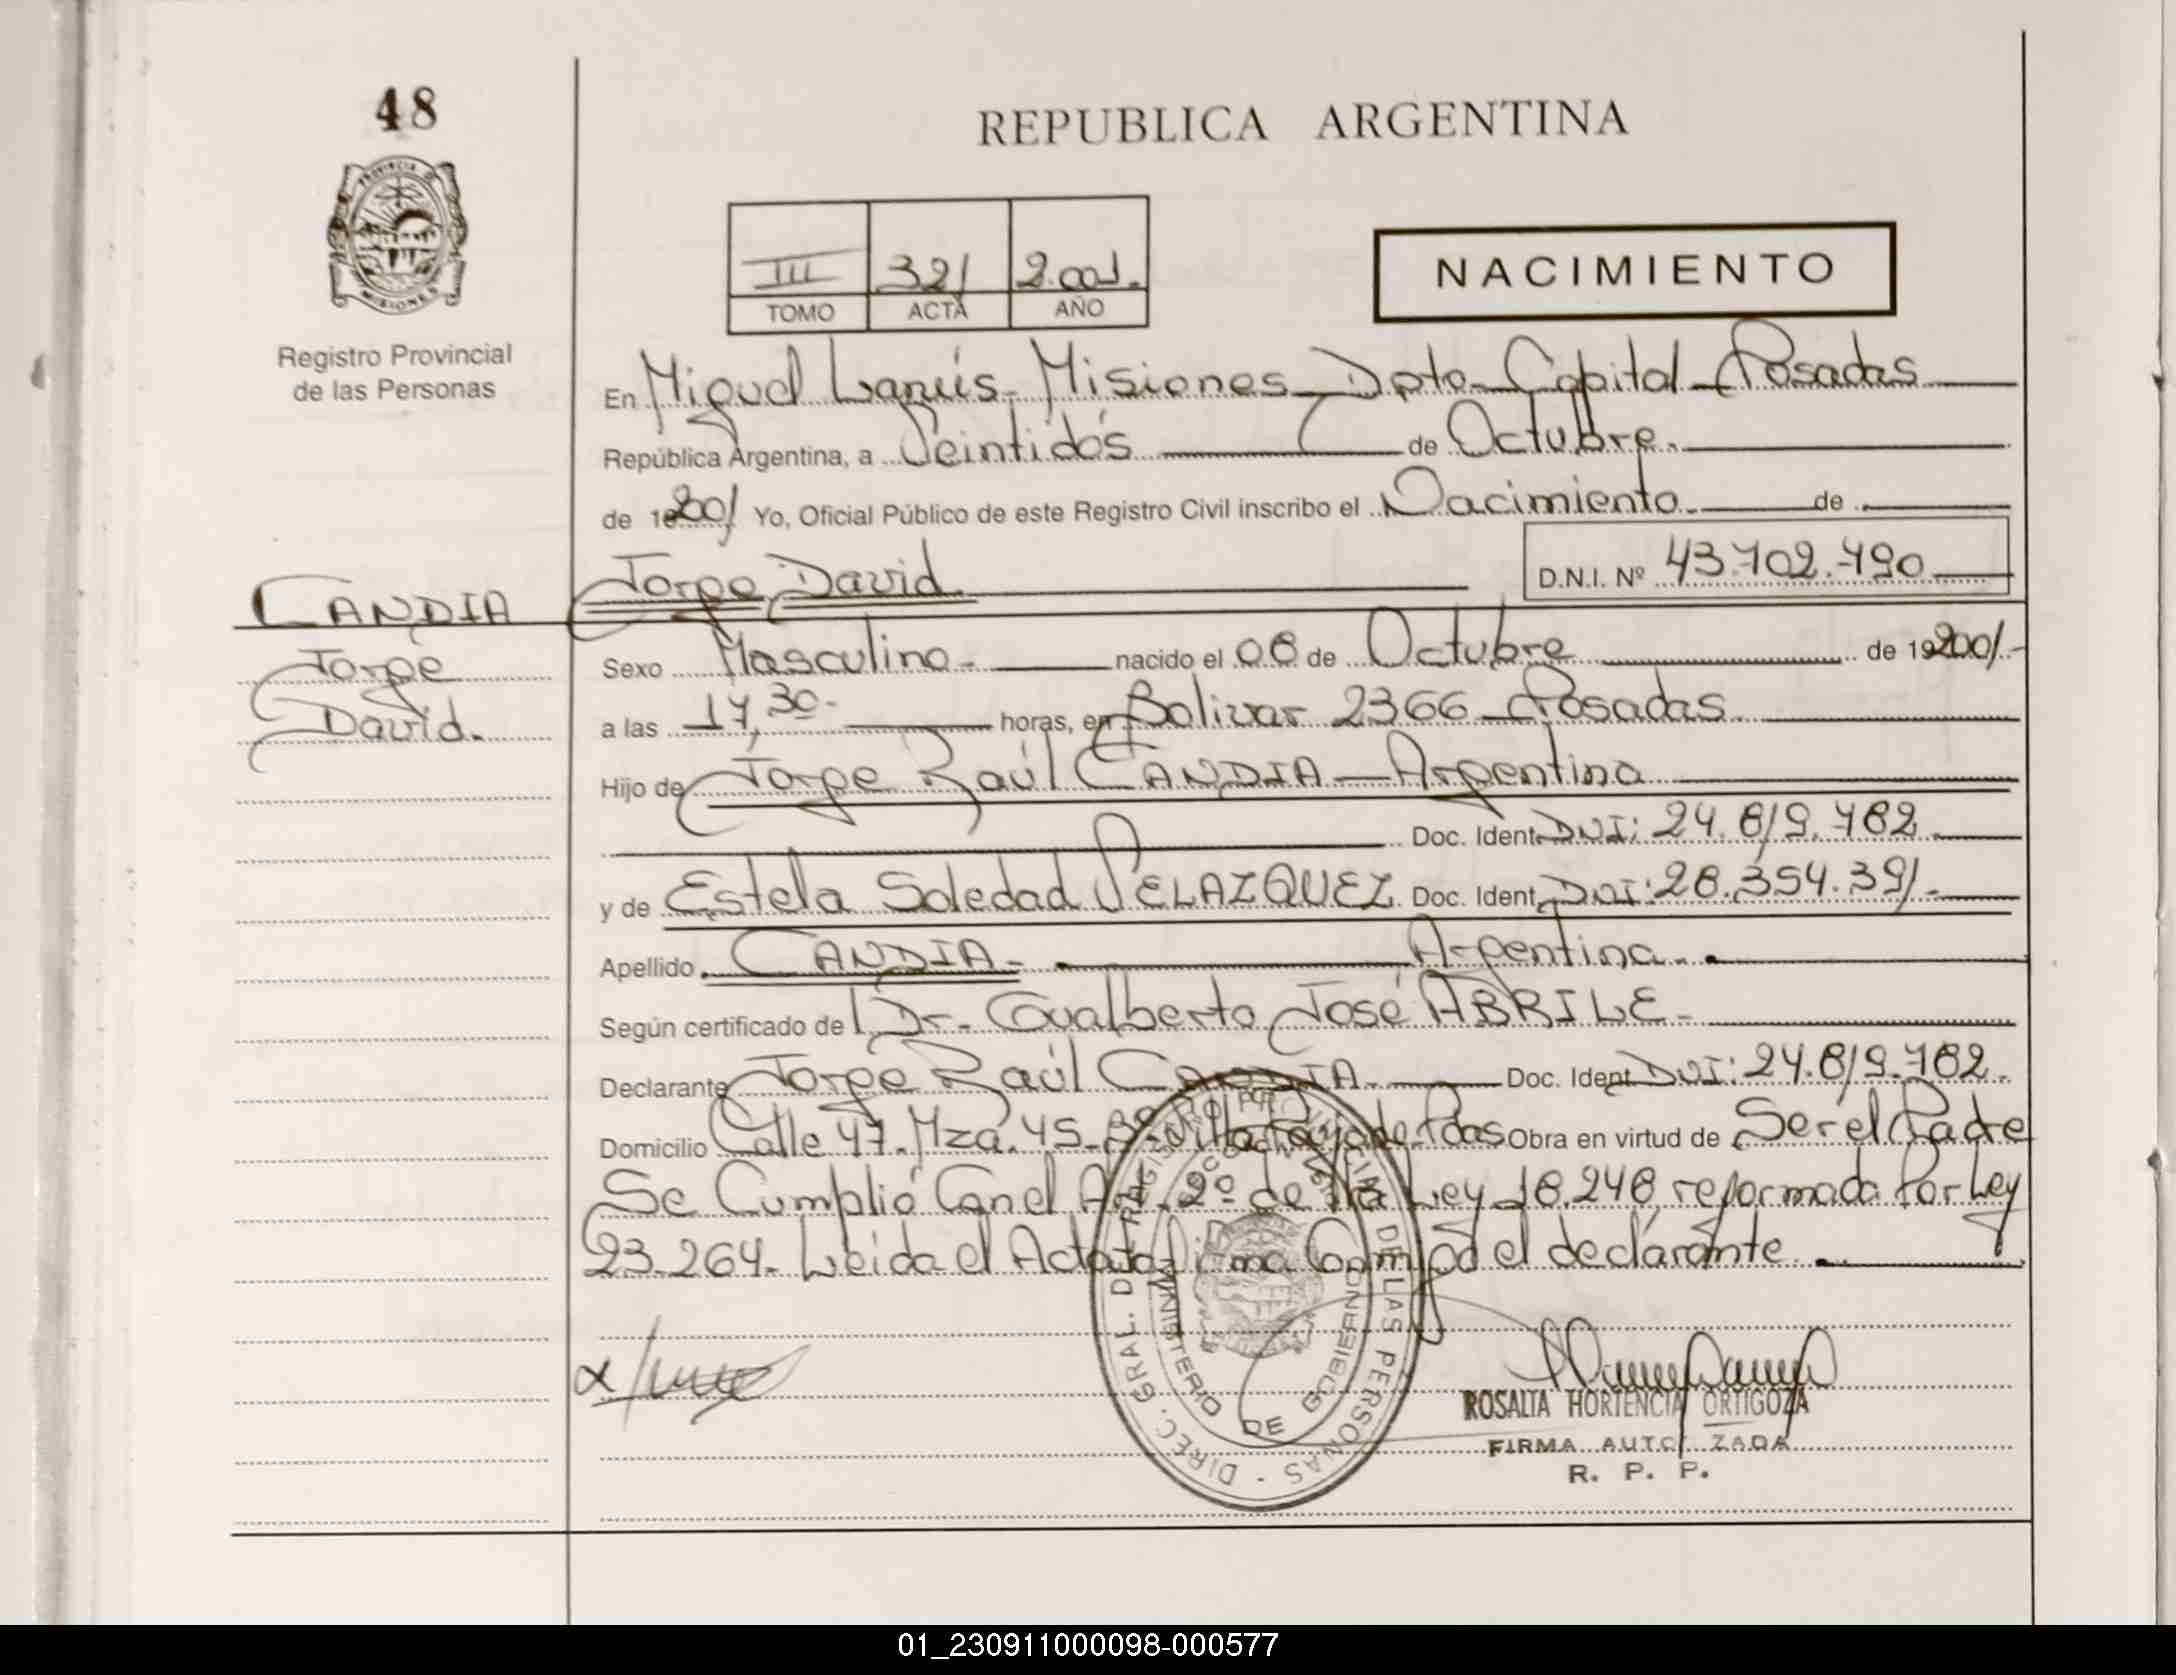 48
REPUBLICA ARGENTINA
PROVINCIA DE
MISIONES
Registro Provincial
de las Personas
III 321 2.001.
TOMO ACTA AÑO
NACIMIENTO
En Miguel Lanús - Misiones - Dpto - Capital - Posadas
República Argentina, a Veintidós de Octubre.
de 2001 Yo, Oficial Público de este Registro Civil inscribo el Nacimiento. de
Jorge David.
D.N.I. Nº 43.702.790
CANDIA
Jorge
David.
Sexo Masculino - nacido el 08 de Octubre de 192001.-
a las 17,30- horas, en Bolivar 2366 - Posadas
Hijo de Jorge Raúl CANDIA - Argentina
Doc. Ident. DNI: 24.819.782
y de Estela Soledad VELAZQUEZ. Doc. Ident. DNI: 28.354.391.-
Apellido CANDIA - Argentina.
Según certificado de Dr. Gualberto José ABRILE -
Declarante Jorge Raúl CANDIA. Doc. Ident. DNI: 24.819.782.
Domicilio Calle 47. Mza. 45. Obra en virtud de Ser el Padre
Se Cumplió Con el Art. 2º de la Ley 18.248, reformada Por Ley
23.264. Leida el Acta la firma Conmigo el declarante.
DIREC. GRAL. DEL REGISTRO PROVINCIAL DE LAS PERSONAS
MINISTERIO DE GOBIERNO
ROSALIA HORTENCIA ORTIGOZA
FIRMA AUTORIZADA
R. P. P.
01_230911000098-000577